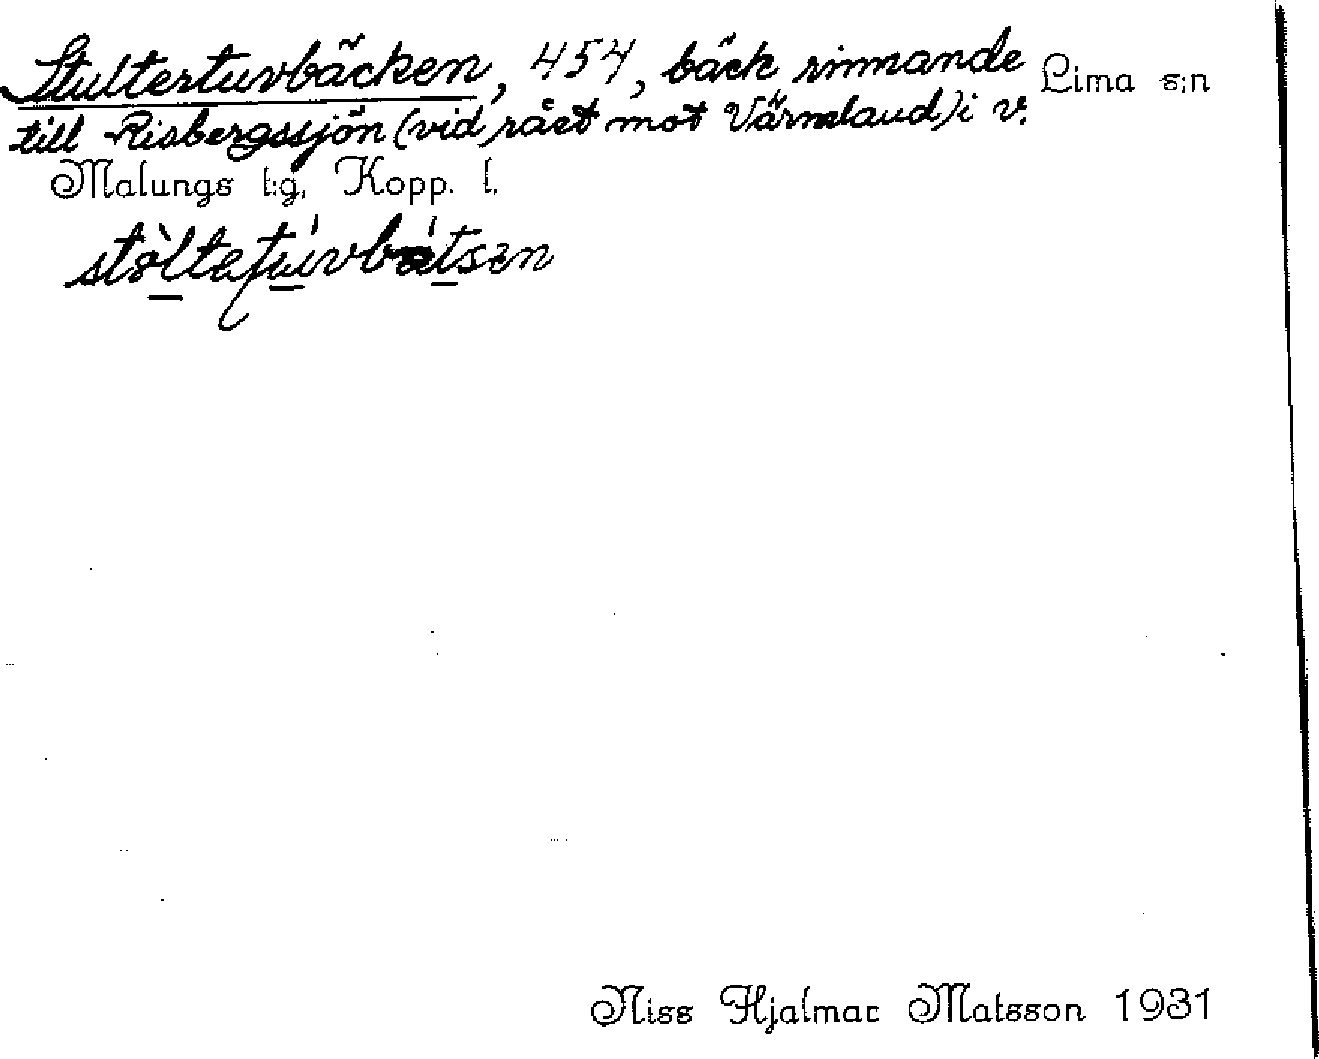 Stultertuvbäcken, 454, bäck rinnande Lima s:n
till Risbergssjön (vid rået mot Värmland) i v.
Malungs t:g, Kopp. l.
Niss Hjalmar Matsson 1931